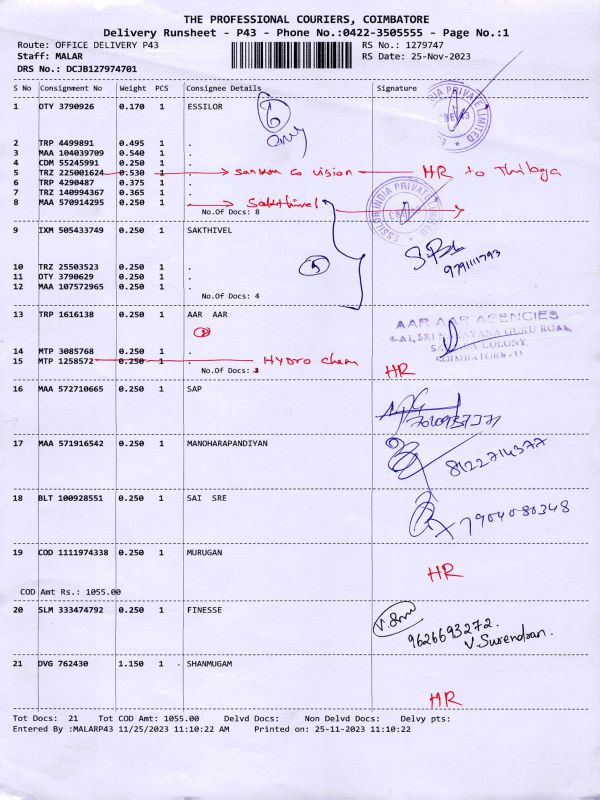 THE PROFESSIONAL COURIERS, COIMBATORE
Delivery Runsheet - P43 - Phone No.:0422-3505555 - Page No.:1
Route: OFFICE DELIVERY P43 RS No.: 1279747
Staff: MALAR RS Date: 25-Nov-2023
DRS No.: DCJB127974701
S No Consignment No Weight PCS Consignee Details Signature
1 DTY 3790926 0.170 1 ESSILOR
6
2 TRP 4499891 0.495 1 .
3 MAA 104039709 0.540 1 .
4 CDM 55245991 0.250 1 .
5 TRZ 225001624 0.530 1 Sankara Co Vision HR to Thilaga
6 TRP 4290487 0.375 1 .
7 TRZ 140994367 0.365 1 .
8 MAA 570914295 0.250 1 . Sakthivel
No.Of Docs: 8
ESSILOR INDIA PRIVATE LIMITED
9 IXM 505433749 0.250 1 SAKTHIVEL
9791111793
5
10 TRZ 25503523 0.250 1 .
11 DTY 3790629 0.250 1 .
12 MAA 107572965 0.250 1 .
No.Of Docs: 4
13 TRP 1616138 0.250 1 AAR AAR
AAR AAR AGENCIES
GURU ROAD,
COLONY,
COIMBATORE - 11
14 MTP 3085768 0.250 1 .
15 MTP 1258572 0.250 1 Hydro chem HR
No.Of Docs: 3
16 MAA 572710665 0.250 1 SAP
17 MAA 571916542 0.250 1 MANOHARAPANDIYAN
8122714377
18 BLT 100928551 0.250 1 SAI SRE
7904080348
19 COD 1111974338 0.250 1 MURUGAN
HR
COD Amt Rs.: 1055.00
20 SLM 333474792 0.250 1 FINESSE
9626693272.
V. Surendran.
21 DVG 762430 1.150 1 SHANMUGAM
HR
Tot Docs: 21 Tot COD Amt: 1055.00 Delvd Docs: Non Delvd Docs: Delvy pts:
Entered By :MALARP43 11/25/2023 11:10:22 AM Printed on: 25-11-2023 11:10:22